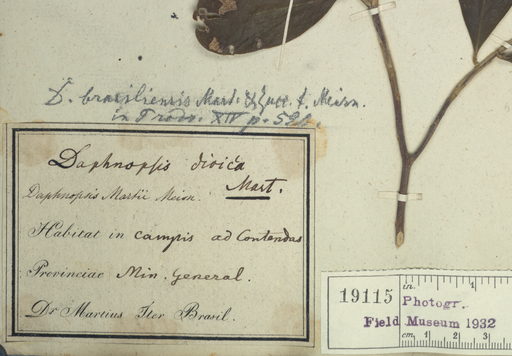 D. brasiliensis Mart. & Zucc. f. Meisn.
in Prodr. XIV p. 521
Daphnopsis dioica
Mart.
Daphnopsis Martii Meisn.
Habitat in campis ad Contendas
Provinciae Min. General.
Dr Martius Iter Brasil.
19115
in.
1
Photogr.
Field Museum 1932
cm. 1 2 3